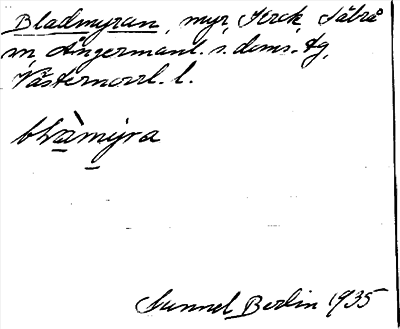 Bladmyran, myr, Krok, Säbrå
sn, Ångermanl. s. doms. tg,
Västernorrl. l.
blàmýra
Gunnel Berlin 1935